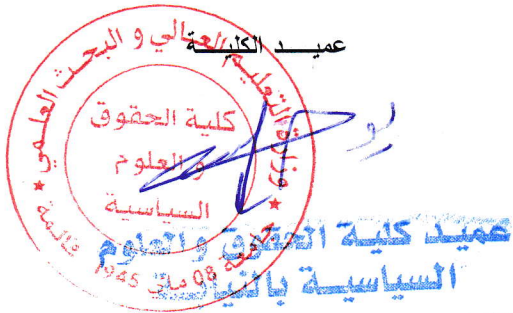 عميــد الكليــــة
وزارة التعليم العالي و البحث العلمي
كلية الحقوق
و العلوم
السياسية
جامعة 08 ماي 1945 قالمة
عميد كلية الحقوق والعلوم
السياسية بالنيابة